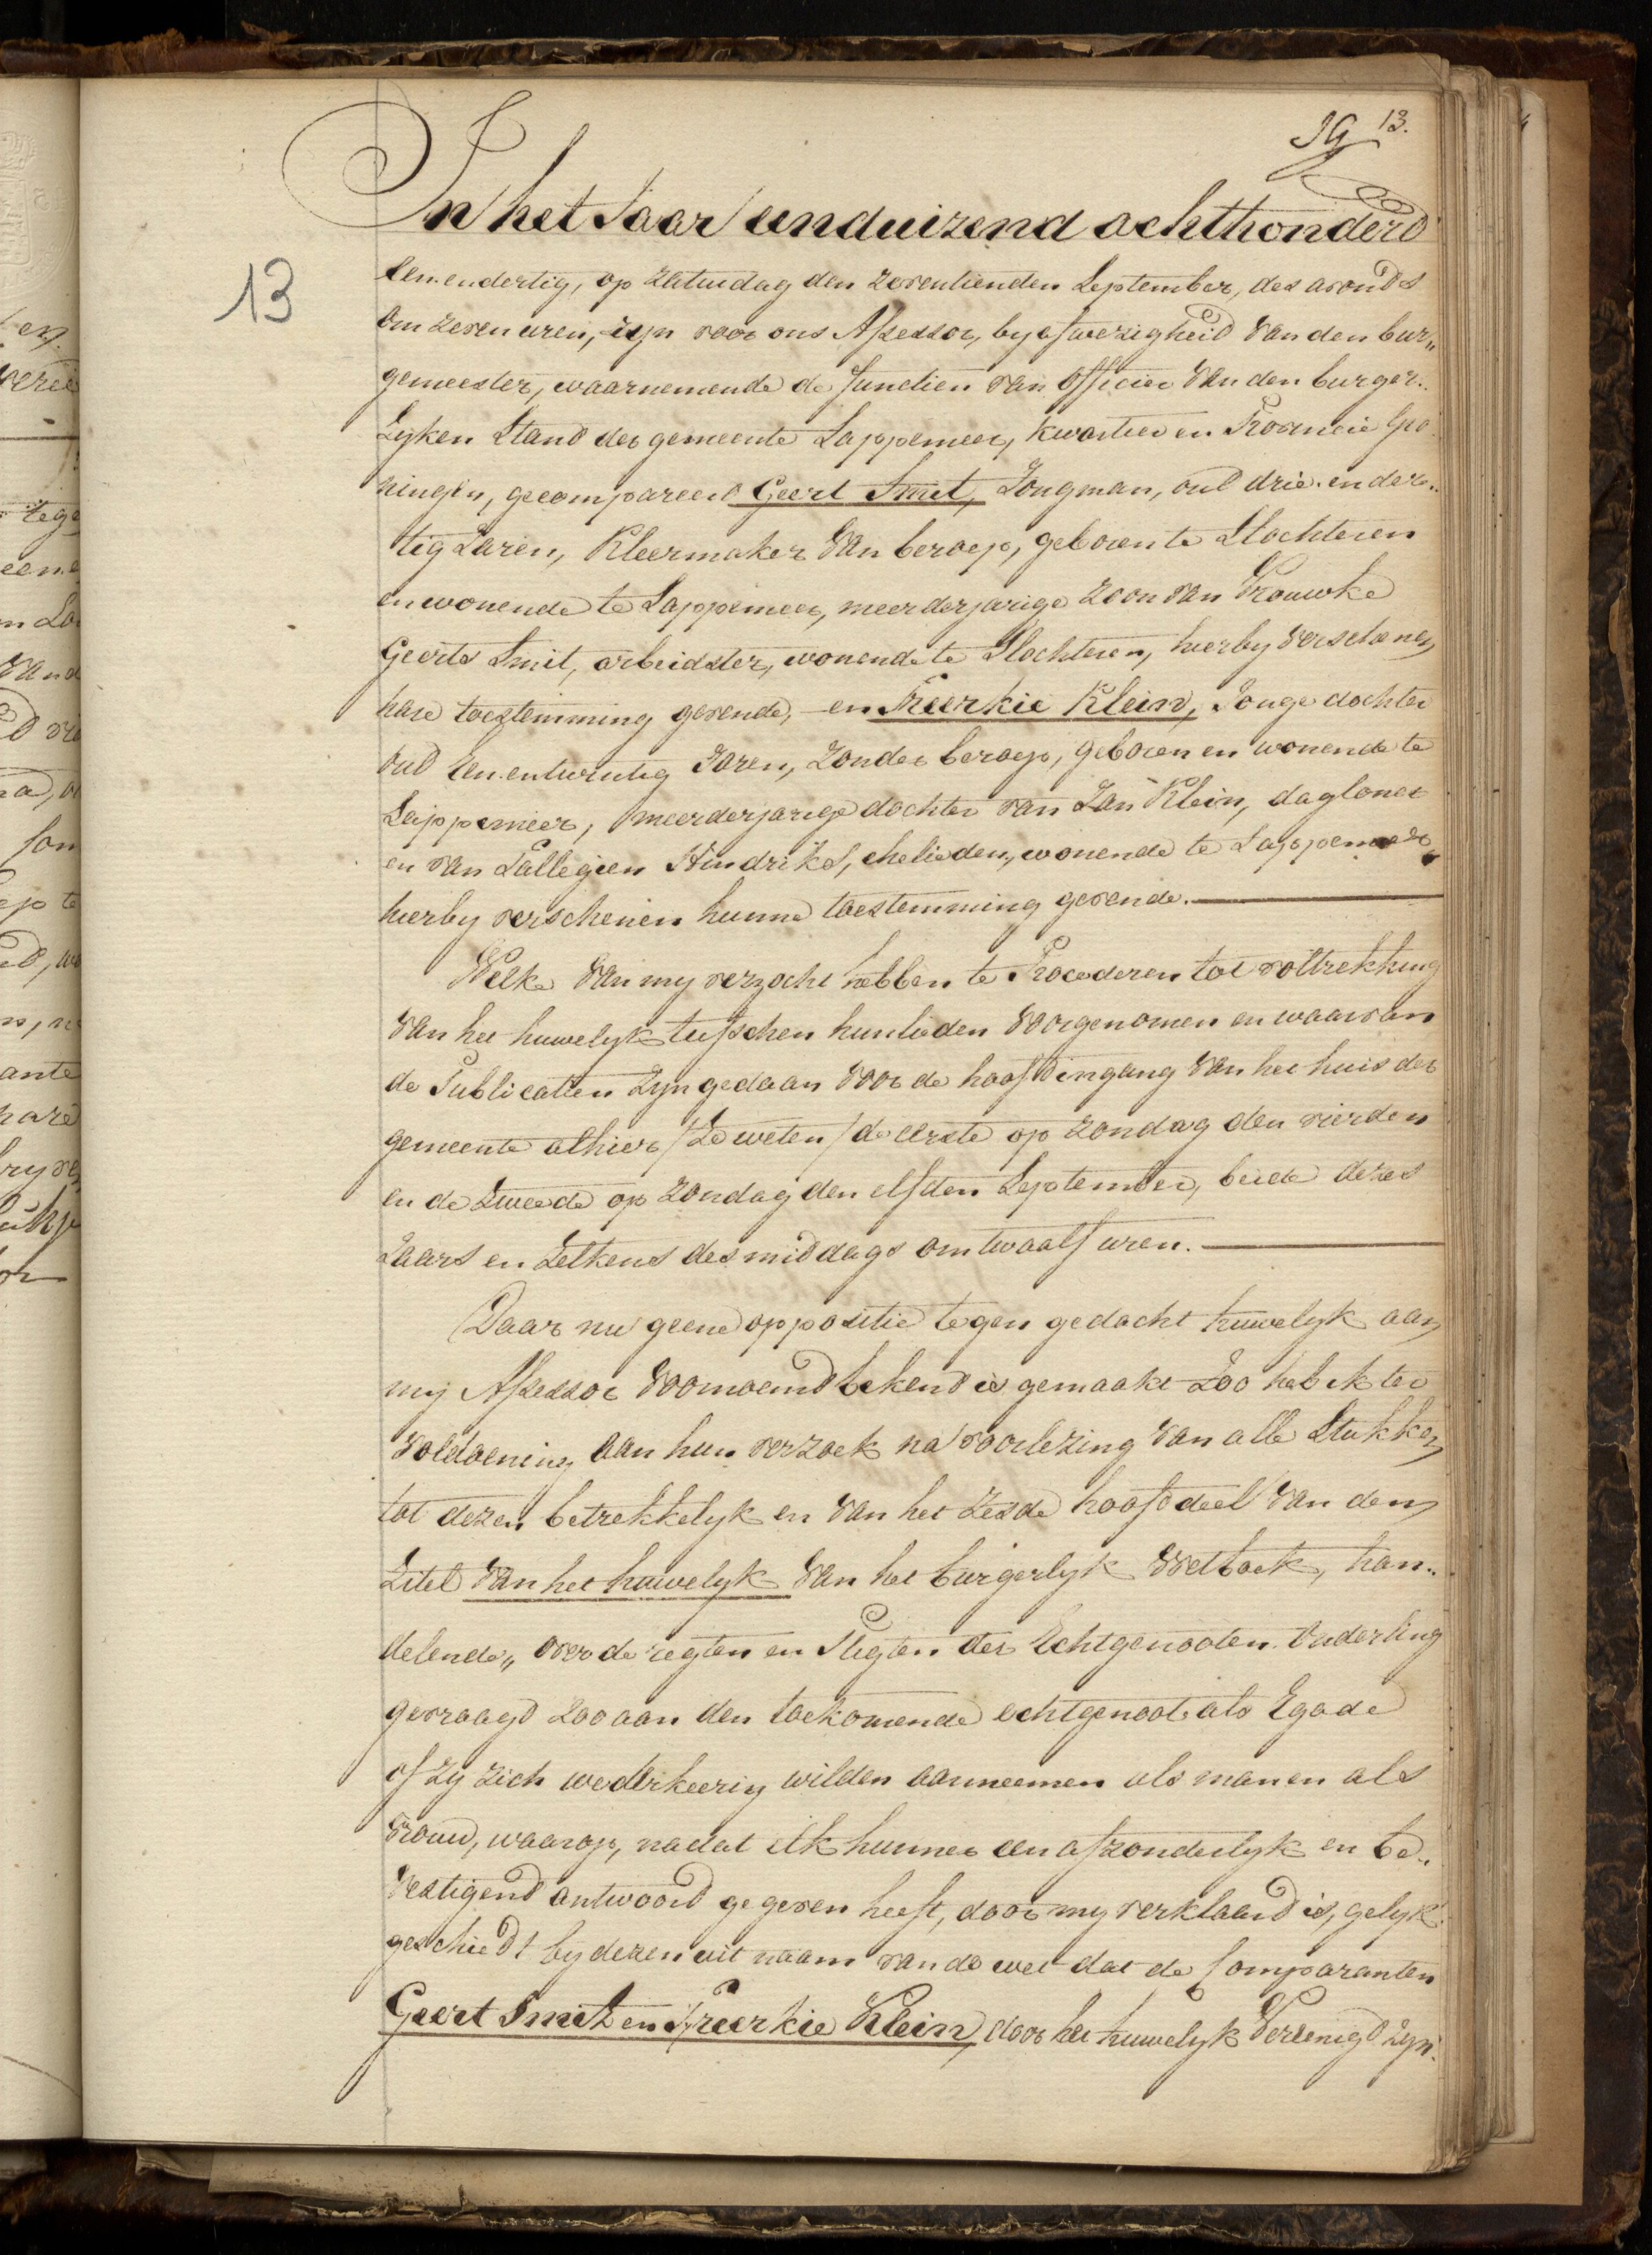 13.
In het Jaar eenduizend achthonderd
13
een en dertig, op Zaturdag den zeventienden September, des avonds
om zeven uren, zijn voor ons Assessor, by afwezigheid van den bur„
gemeester, waarnemende de functien van Officier van den burger„
lyken Stand der gemeente Sappemeer, Kwartier en Provincie Gro
ningen, gecompareerd Geert Smit, Jongman, oud drie en der„
tig Jaren, Kleermaker van beroep, geboren te Slochteren
en wonende te Sappemeer, meerderjarige zoon van Vrouwke
Geerts Smit, arbeidster, wonende te Slochteren, hierby verschenen
hare toestemming gevende, en Freerkie Klein, Jonge dochter
oud een en twintig Jaren, zonder beroep, geboren en wonende te
Sappemeer, meerderjarige dochter van Jan Klein, dagloner
en van Hindriks, echelieden, wonende te Sappemeer,
hierby verschenen hunne toestemming gevende.
Welke van my verzocht hebben te Procederen tot voltrekking
van het huwelyk tusschen hunlieden voorgenomen en waarvan
de Publicatien zyn gedaan voor de hoofdingang van het huis der
gemeente alhier / te weten / de eerste op zondag den vierden
en de tweede op zondag den elfden September, beide dezes
Jaars en telkens des middags om twaalf uren.
Daar nu geene oppositie tegen gedacht huwelyk aan
my Assessor voornoemd bekend is gemaakt Zoo heb ik ter
voldoening aan hun verzoek na voorlezing van alle Stukken
tot dezen betrekkelyk en van het zesde hoofddeel van den
Titel van het huwelyk van het burgerlyk Wetboek, han„
delende„ over de regten en Pligten der Echtgenooten onderling
gevraagd zoo aan den toekomende echtgenoot als Egade
of zy zich wederkeerig wilden aanneemen als man en als
vrouw, waarop, nadat elk hunner een afzonderlyk en be„
vestigend antwoord gegeven heeft, door my verklaard is, gelyk
geschiedt by dezen uit naam van de wet dat de Comparanten
Geert Smit en Freerkie Klein, door het huwelyk Vereenigd zyn.